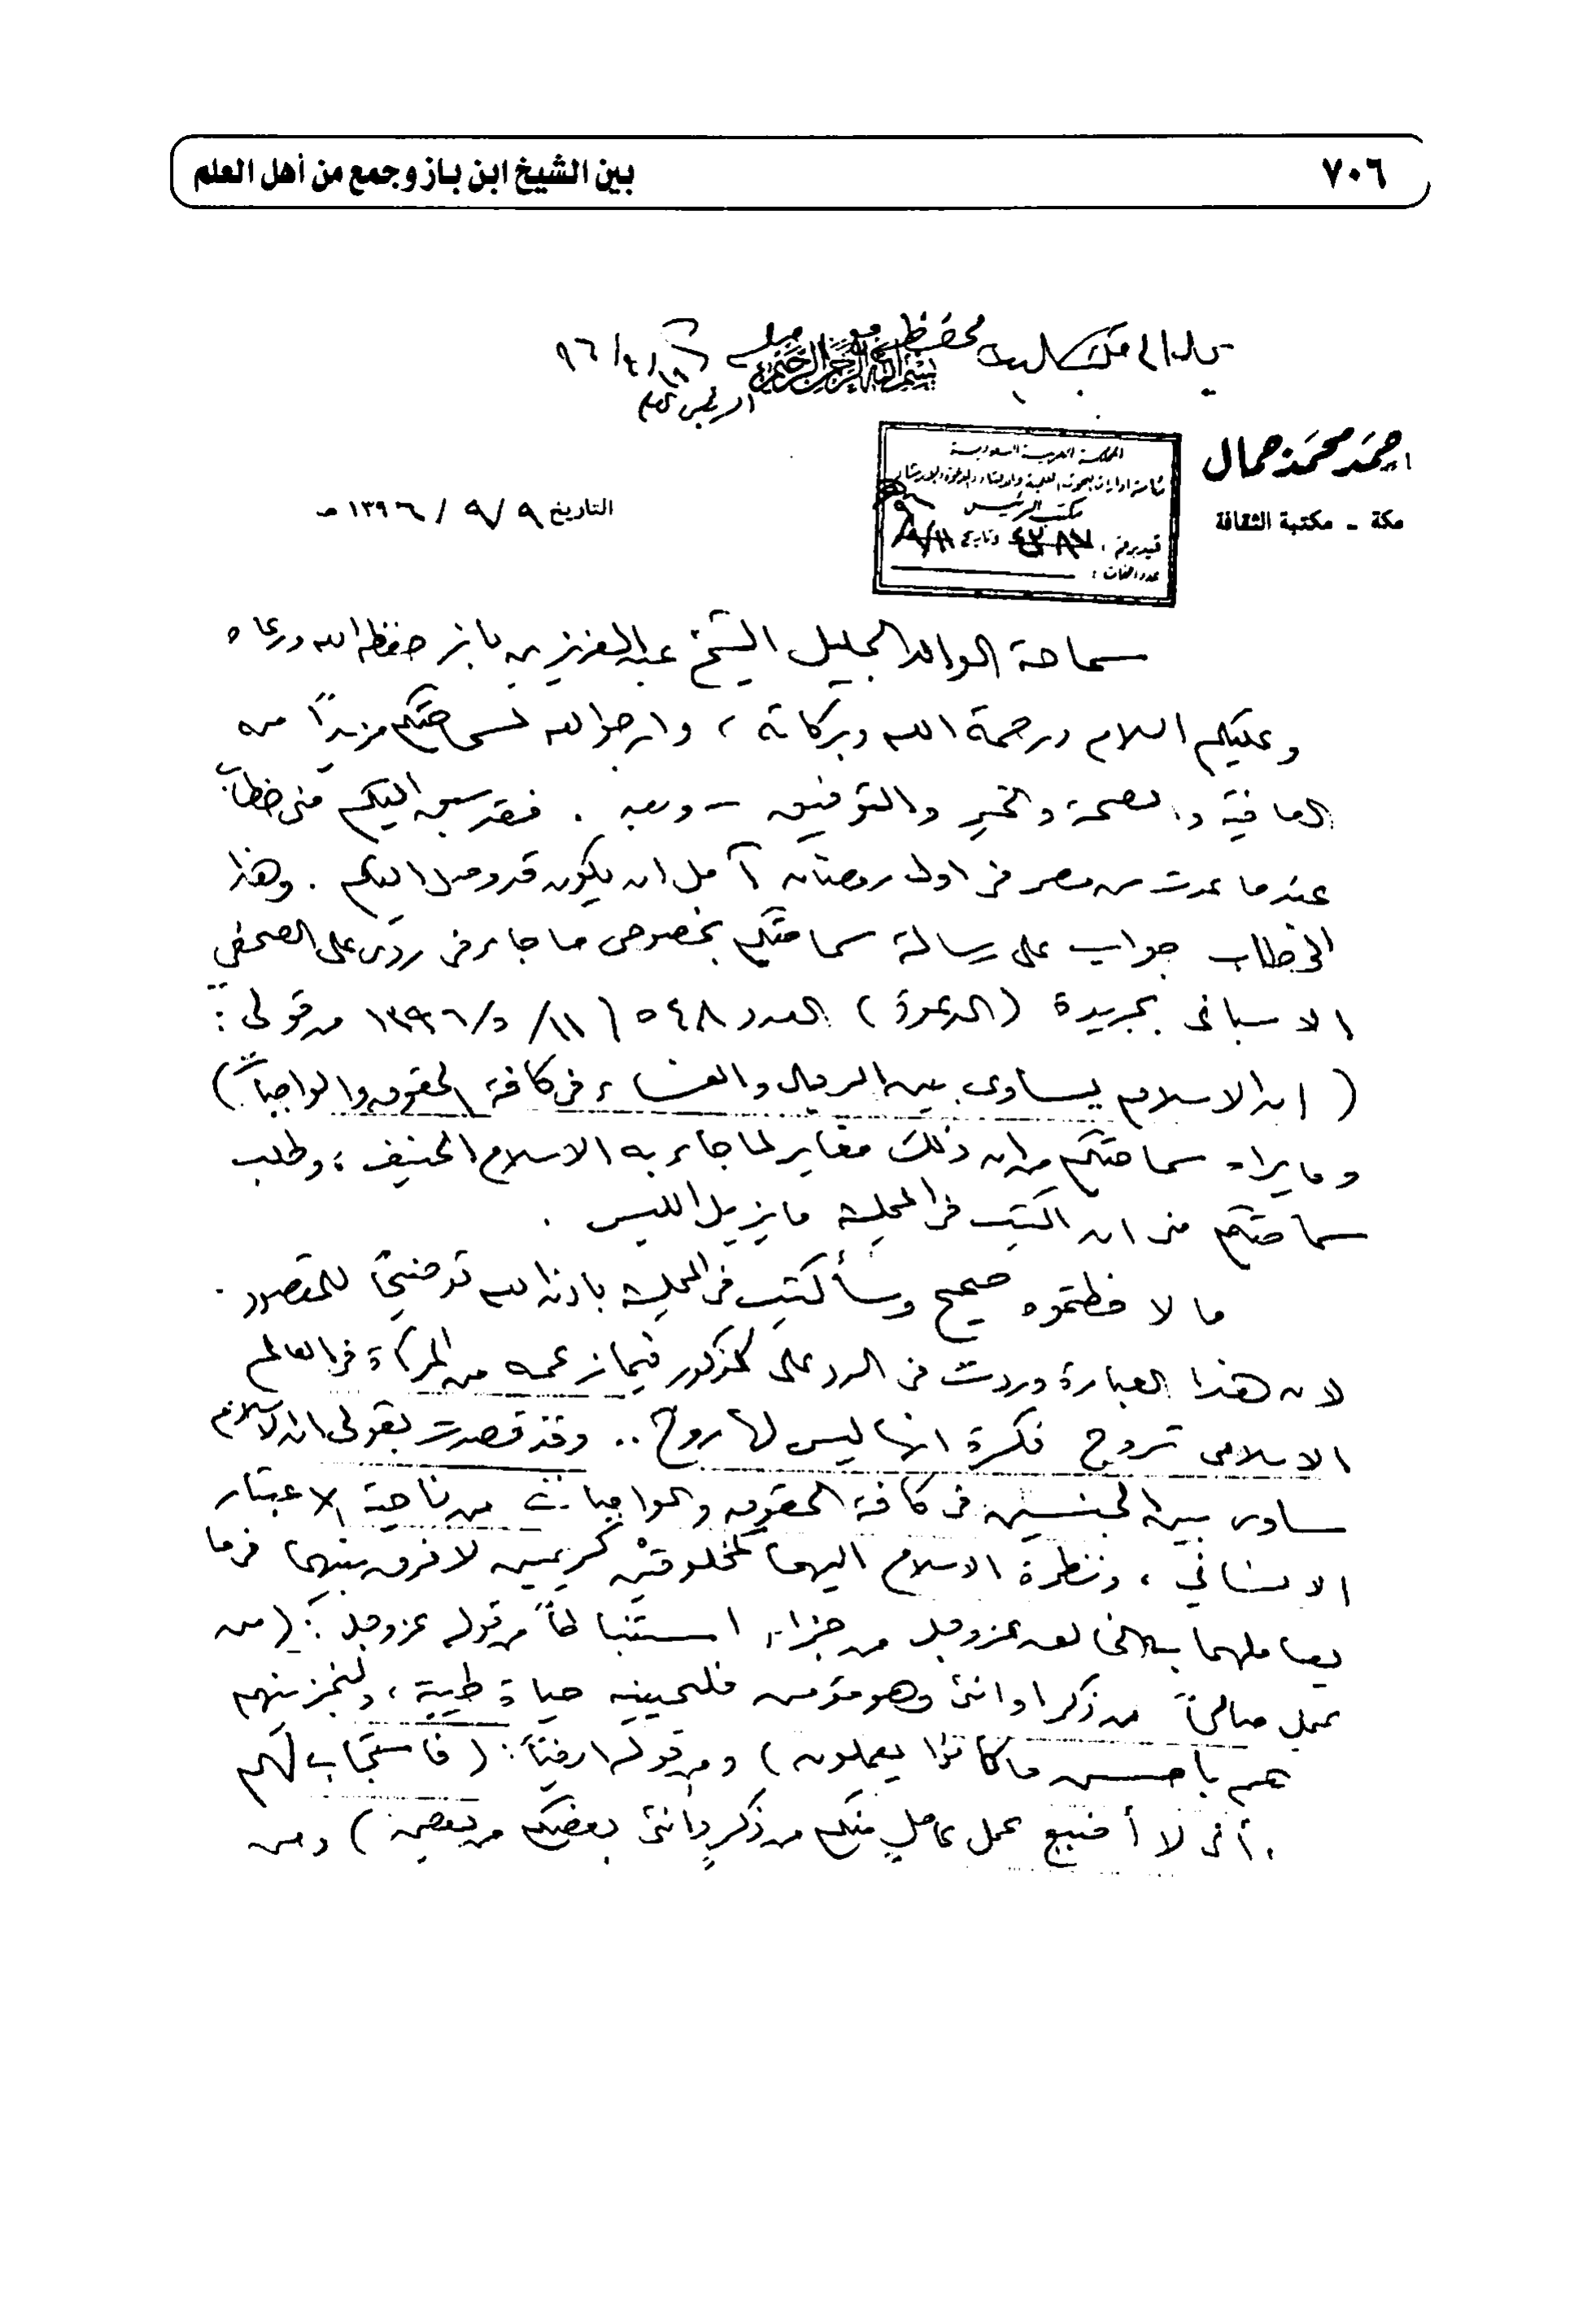 ٧٠٦
بين الشيخ ابن باز وجمع من أهل العلم
بسم الله الرحمن الرحيم
٩٦/٩/١٨
احمد محمد جمال
مكة ـ مكتبة الثقافة
المملكة العربية السعودية
مكتب الرئيس
قيد برقم :
عدد اللفات :
التاريخ ٩ / ٩ / ١٣٩٦ هـ
سماحة الوالد الجليل الشيخ عبد العزيز بن باز حفظه الله ورعاه
وعليكم السلام ورحمة الله وبركاته ، وارجو الله لسماحتكم مزيداً من
العافية والصحة والخير والتوفيق – وبعد . فقد سبق اليكم مني خطاب
عندما عدت من مصر في اول رمضان آمل ان يكون قد وصل اليكم . وهذا
الخطاب جواب على رسالة سماحتكم بخصوص ما جاء في ردي على الصحفي
الاسباني بجريدة (الدعوة) العدد ٥٤٨ ( ١١/ ٥/ ١٣٩٦ من قولي :
( ان الاسلام يساوي بين الرجال والنساء في كافة الحقوق والواجبات )
وما يراه سماحتكم من ان ذلك مغاير لما جاء به الاسلام الحنيف ؛ وطلب
سماحتكم مني ان اكتب في المجلة ما يزيل اللبس .
ما لاحظتموه صحيح وسأكتب في المجلة باذن الله توضيحاً للمقصود .
لان هذا العبارة وردت في الرد على المذكور فيما زعمه من المرأة في العالم
الاسلامي تروج فكرة انها ليس لها روح .. وقد قصدت بقولي ان الاسلام
ساوى بين الجنسين في كافة الحقوق والواجبات من ناحية الاعتبار
الانساني ، ونظرة الاسلام اليهما كمخلوقين كريمين لا فرق بينهما فيما
يعاملهما به الخالق عز وجل من جزاء استنباطاً من قوله عز وجل : (من
عمل صالحاً من ذكر او انثى وهو مؤمن فلنحيينه حياة طيبة ، ولنجزينهم
هم بأحسن ما كانوا يعملون ) ومن قوله ايضاً : ( فاستجاب لهم
أني لا أضيع عمل عامل منكم من ذكر وانثى بعضكم من بعض ) ومن